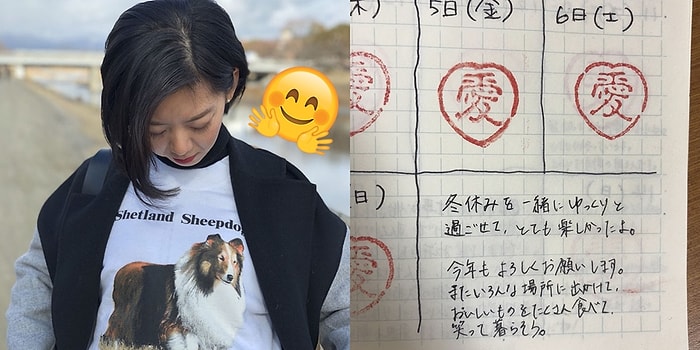 Shetland Sheepdog
木)
5日(金)
6日(土)
愛
愛
日)
冬休みを一緒にゆっくりと
過ごせて、とても楽しかったよ。
今年もよろしくお願いします。
またいろんな場所に出かけて、
おいしいものをたくさん食べて、
笑って暮らそう。